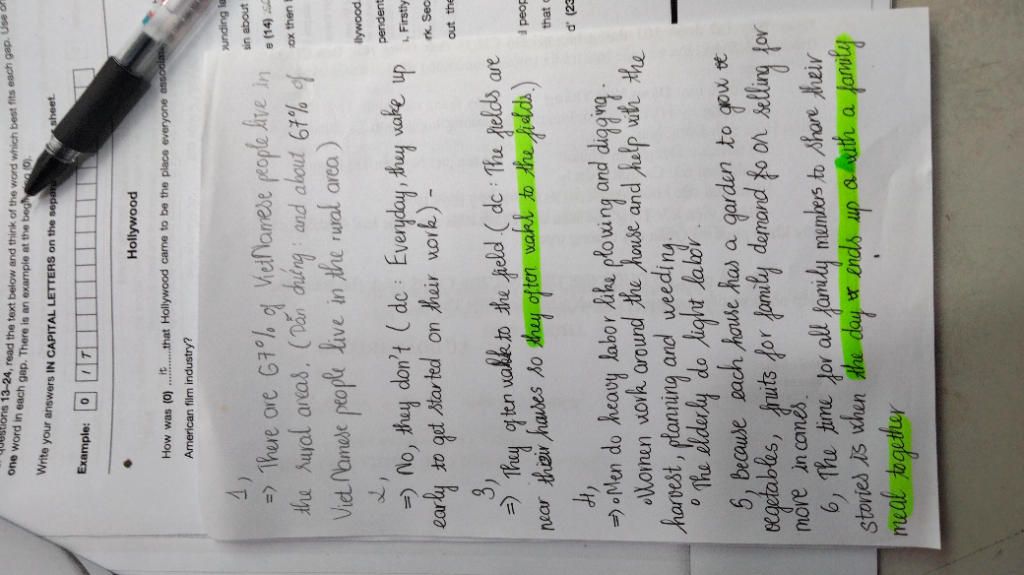 questions 13–24, read the text below and think of the word which best fits each gap. Use on
one word in each gap. There is an example at the beginning (0).
Write your answers IN CAPITAL LETTERS on the separate sheet.
Example: 0 I T
Hollywood
How was (0) ....it....that Hollywood came to be the place everyone associa
American film industry?
ounding la
sin about
e (14)
ox then
llywood.
pendent
. Firstly
rk. Sec
out the
d peop
that
d' (23
1,
=> There are 67% of VietNamese people live in
the rural areas. (Dẫn chứng: and about 67% of
VietNamese people live in the rural area)
2,
=> No, they don't (dc: Everyday, they wake up
early to get started on their work) -
3,
=> They often walk to the field (dc: The fields are
near their houses so they often wakl to the fields.)
4,
=> ° Men do heavy labor like plowing and digging.
° Women work around the house and help with the
harvest, planning and weeding.
° The elderly do light labor.
5, because each house has a garden to grow
vegetables, fruits for family demand for selling for
more incomes.
6, The time for all family members to share their
stories is when the day ends up with a family
meal together